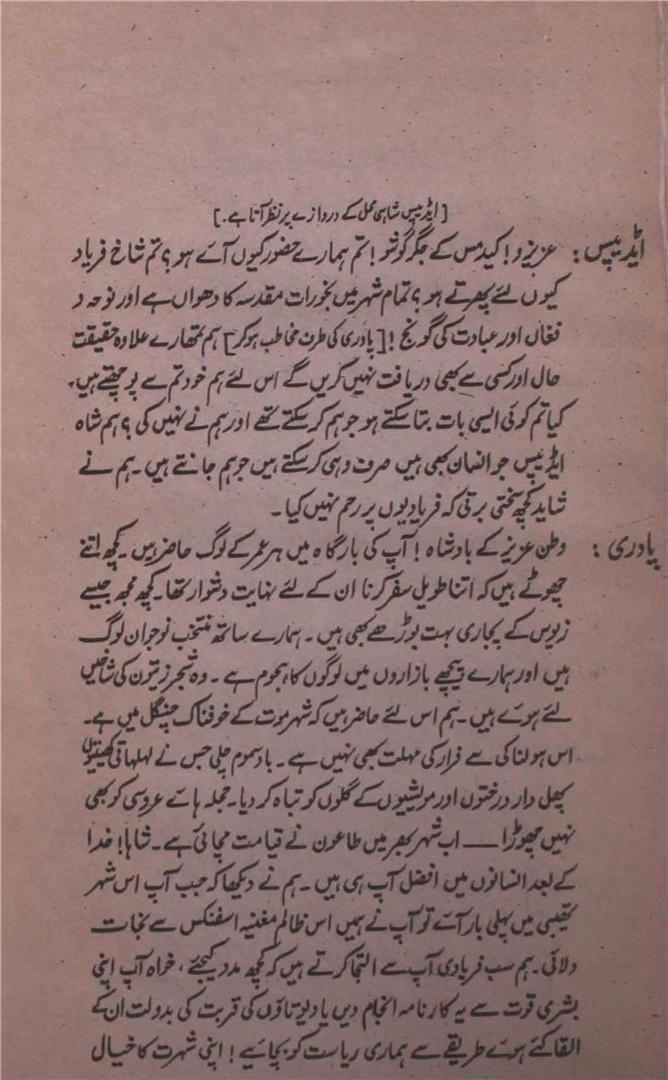 [ایڈیپس شاہی محل کے دروازے پر نظر آتا ہے۔]
ایڈیپس: عزیزو! کیدمس کے جگر گوشو! تم ہمارے حضور کیوں آئے ہو؟ تم شاخ فریاد
کیوں لئے پھرتے ہو؟ تمام شہر میں بخورات مقدسہ کا دھواں ہے اور نوحہ و
فغاں اور عبادت کی گونج! [پادری کی طرف مخاطب ہوکر] ہم تمھارے علاوہ حقیقت
حال اور کسی سے بھی دریافت نہیں کریں گے اس لئے ہم خود تم سے پوچھتے ہیں،
کیا تم کوئی ایسی بات بتا سکتے ہو جو ہم کر سکتے تھے اور ہم نے نہیں کی؟ ہم شاہ
ایڈیپس جو انسان بھی ہیں صرف وہی کر سکتے ہیں جو ہم جانتے ہیں۔ ہم نے
شاید کچھ سختی برتی کہ فریادیوں پر رحم نہیں کیا۔
پادری: وطن عزیز کے بادشاہ! آپ کی بارگاہ میں ہر عمر کے لوگ حاضر ہیں۔ کچھ اتنے
چھوٹے ہیں کہ اتنا طویل سفر کرنا ان کے لئے نہایت دشوار تھا۔ کچھ مجھ جیسے
زیوس کے پجاری بہت بوڑھے بھی ہیں۔ ہمارے ساتھ منتخب نوجوان لوگ
ہیں اور ہمارے پیچھے بازاروں میں لوگوں کا ہجوم ہے۔ وہ شجر زیتون کی شاخیں
لئے ہوئے ہیں۔ ہم اس لئے حاضر ہیں کہ شہر موت کے خوفناک چنگل میں ہے۔
اس ہولناکی سے فرار کی مہلت بھی نہیں ہے۔ باد سموم چلی جس نے لہلہاتی کھیتیوں
پھل دار درختوں اور مویشیوں کے گلوں کو تباہ کر دیا۔ حجلہ ہائے عروسی کو بھی
نہیں چھوڑا — اب شہر بھر میں طاعون نے قیامت مچائی ہے۔ شاہا! خدا
کے بعد انسانوں میں افضل آپ ہی ہیں۔ ہم نے دیکھا کہ جب آپ اس شہر
تھیبی میں پہلی بار آئے تو آپ نے ہمیں اس ظالم مغنیہ اسفنکس سے نجات
دلائی۔ ہم سب فریادی آپ سے التجا کرتے ہیں کہ کچھ مدد کیجئے، خواہ آپ اپنی
بشری قوت سے یہ کارنامہ انجام دیں یا دیوتاؤں کی قربت کی بدولت ان کے
القا کئے ہوئے طریقے سے ہماری ریاست کو بچائیے! اپنی شہرت کا خیال